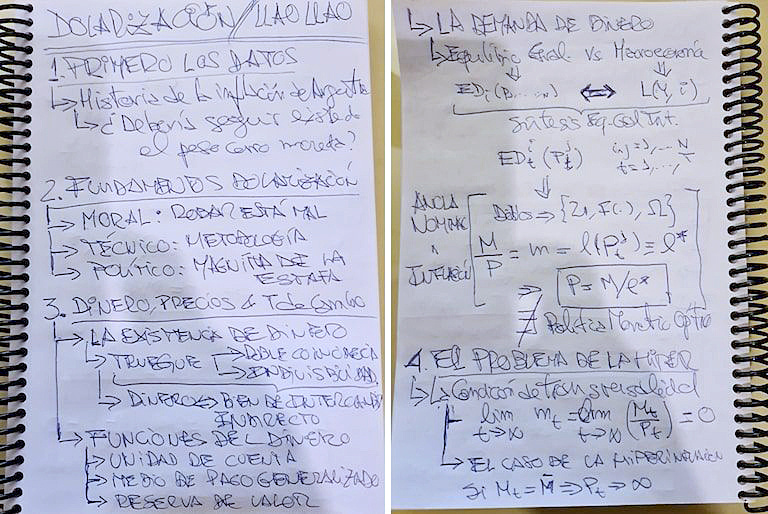 DOLARIZACIÓN/LLAO LLAO
1. PRIMERO LOS DATOS
↳ Historia de la inflación de Argentina
↳ ¿Debería seguir existiendo
el peso como moneda?
2. FUNDAMENTOS DOLARIZACIÓN
→ MORAL: ROBAR ESTÁ MAL
→ TÉCNICO: METODOLOGÍA
→ POLÍTICO: MAGNITUD DE LA
ESTAFA
3. DINERO, PRECIOS & T de Cambio
→ LA EXISTENCIA DE DINERO
↳ TRUEQUE → DOBLE COINCIDENCIA
→ INDIVISIBILIDAD
↳ DINERO ⇔ BIEN DE INTERCAMBIO
INDIRECTO
→ FUNCIONES DEL DINERO
→ UNIDAD DE CUENTA
→ MEDIO DE PAGO GENERALIZADO
→ RESERVA DE VALOR
↳ LA DEMANDA DE DINERO
↳ Equilibrio Gral. Vs Macroeconomía
⇓ ⇓
EDi(P......) ⇔ L(Y, i)
Síntesis Eq. Gral Int.
ED (P) i,j=1,... N
t=1,...,
⇓
ANCLA
NOMINAL
INFLACIÓN
Datos ⇒ {Z, F(.), Ω}
M/P = m = l(P) ≡ l*
⇒ P = M/l*
∄ Política Monetaria Óptima
4. EL PROBLEMA DE LA HIPER
↳ Condición de transversalidad
lim t→∞ mt = lim t→∞ (Mt/Pt) = 0
↳ EL CASO DE LA HIPERINFLACIÓN
Si Mt = M ⇒ Pt → ∞